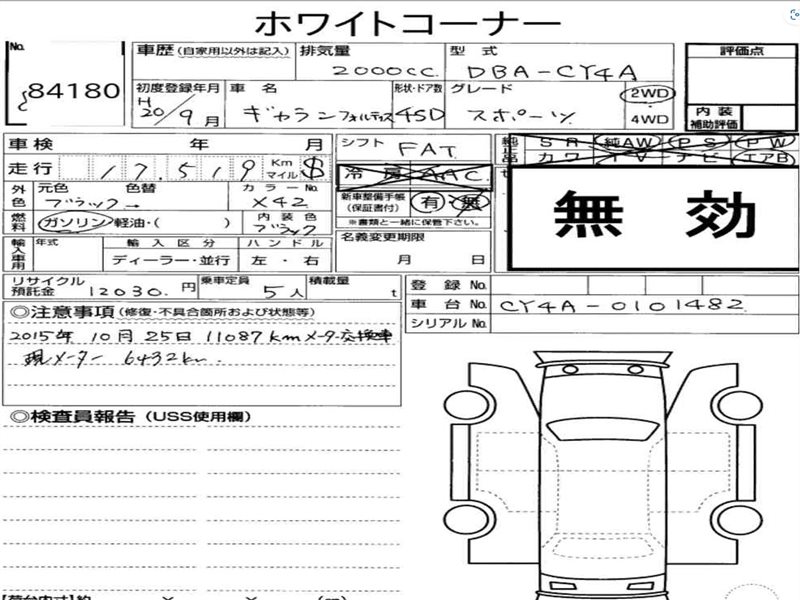 ホワイトコーナー
No.
84180
車歴(自家用以外は記入) 排気量 型 式 評価点
2000cc. DBA-CY4A
初度登録年月 車 名 形状・ドア数 グレード 2WD
H20/9月 ギャランフォルティス 4SD スポーツ 4WD
内装補助評価
車検 年 月 シフト FAT 純正品 SR 純AW PS PW
走行 17,519 Km マイル $ 冷房 AAC カワ TV ナビ エアB
外色 元色 色替 カラーNo. 新車整備手帳(保証書付) 有・無
ブラック→ X42 ※書類と一緒に保管下さい。
燃料 ガソリン・軽油・( ) 内装色 ブラック 名義変更期限
無 効
輸入車用 年式 輸入区分 ハンドル 月 日
ディーラー・並行 左・右
リサイクル預託金 12030.円 乗車定員 5人 積載量 t 登 録 No.
車 台 No. CY4A-0101482
シリアル No.
◎注意事項(修復・不具合箇所および状態等)
2015年10月25日 11087kmメーター交換車
現メーター 6432km.
◎検査員報告(USS使用欄)